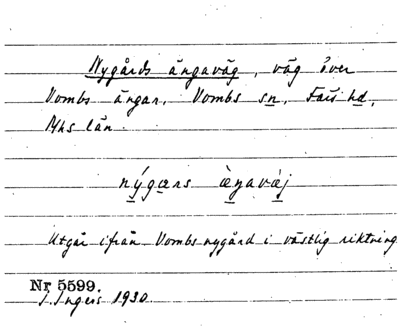 Nygårds ängaväg, väg över
Vombs ängar. Vombs sn, Färs hd,
Mhs län.
nýgærs æŋavæj
Utgår ifrån Vombs nygård i västlig riktning
Nr 5599.
I. Ingers 1930